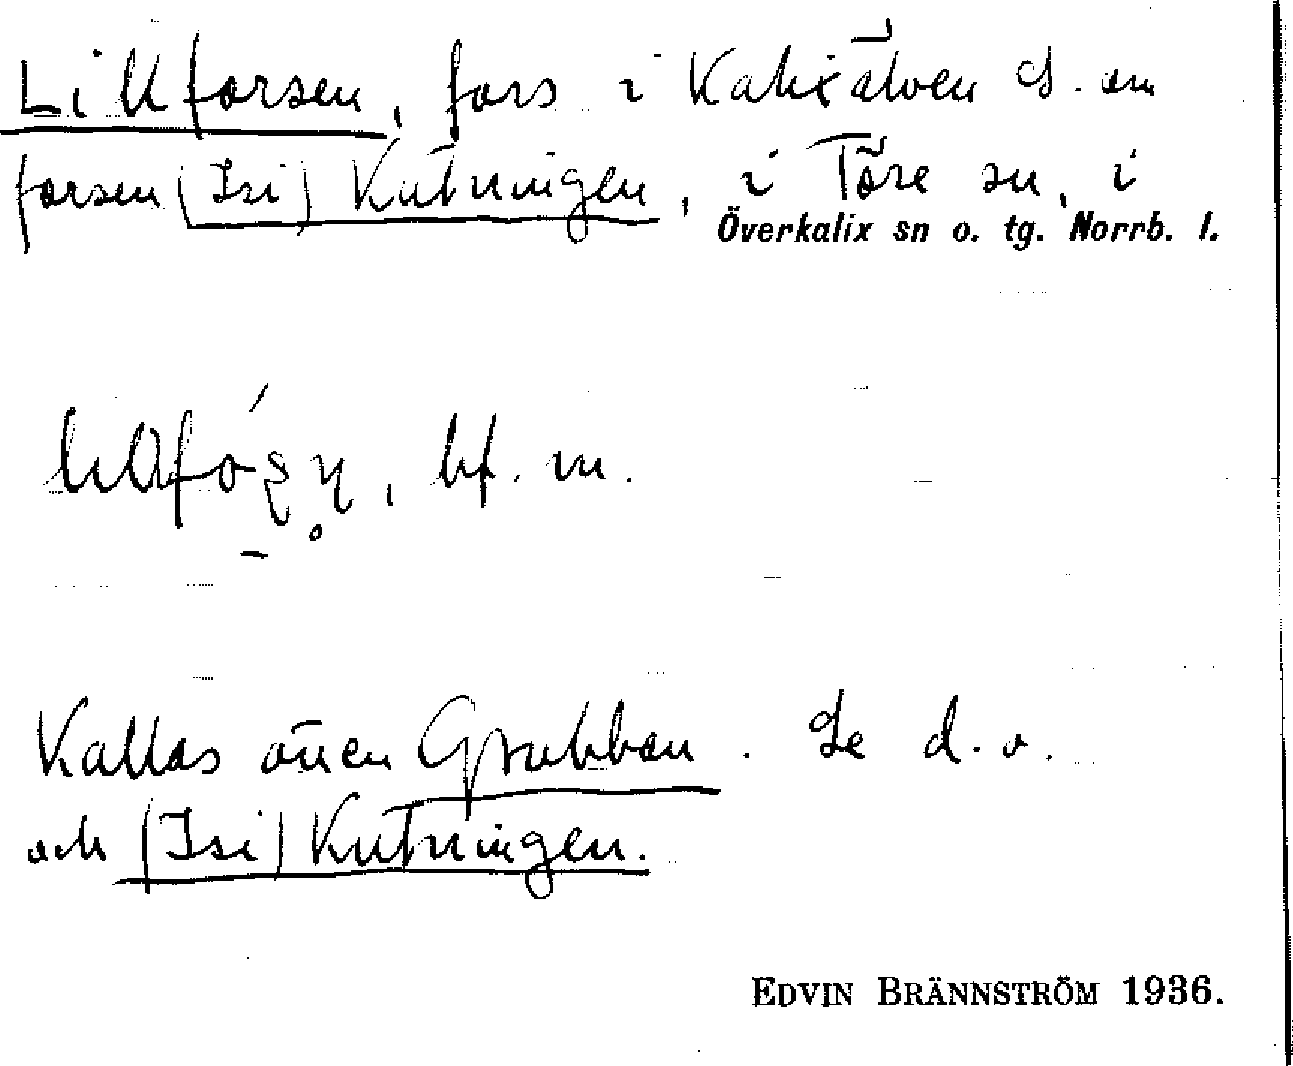 Lillforsen, fors i Kalixälven S. om
forsen (Isi) Kutningen, i Töre sn, i
Överkalix sn o. tg. Norrb. l.
bf. m.
Kallas även Grubban. Se d. o.
och (Isi) Kutningen.
EDVIN BRÄNNSTRÖM 1936.